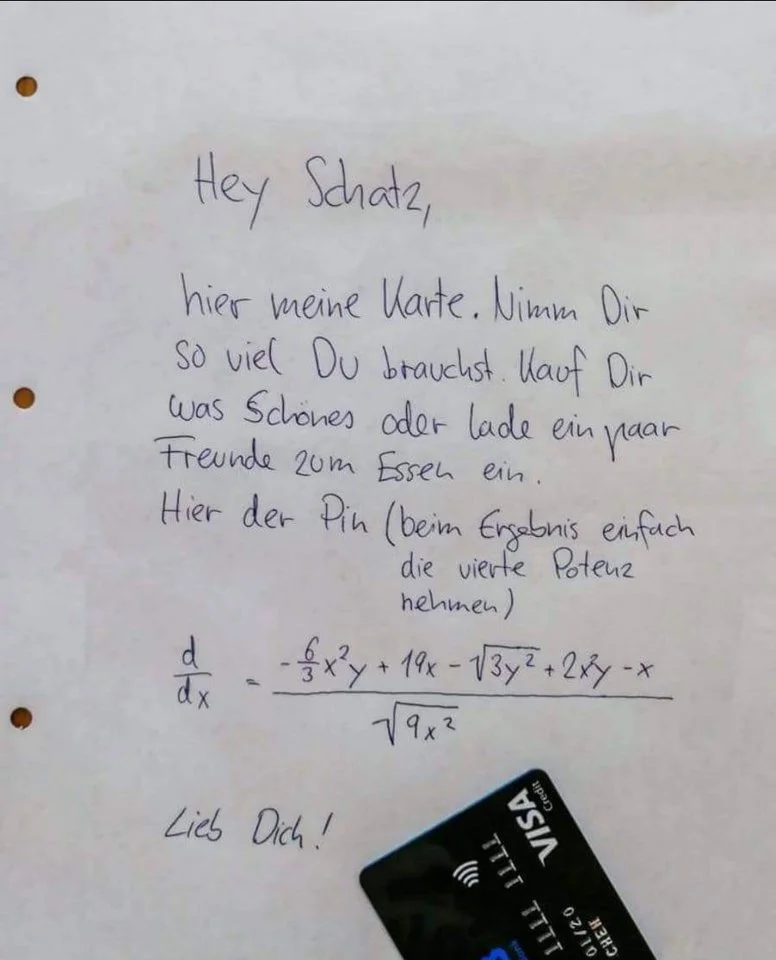 Hey Schatz,
hier meine Karte. Nimm Dir
so viel Du brauchst. Kauf Dir
was Schönes oder lade ein paar
Freunde zum Essen ein.
Hier der Pin (beim Ergebnis einfach
die vierte Potenz
nehmen)
d/dx = (-6/3 x²y + 19x - √(3y²) + 2x²y - x) / √(9x²)
Lieb Dich!
VISA
Credit
1111 1111
1111
01/20
CHEN